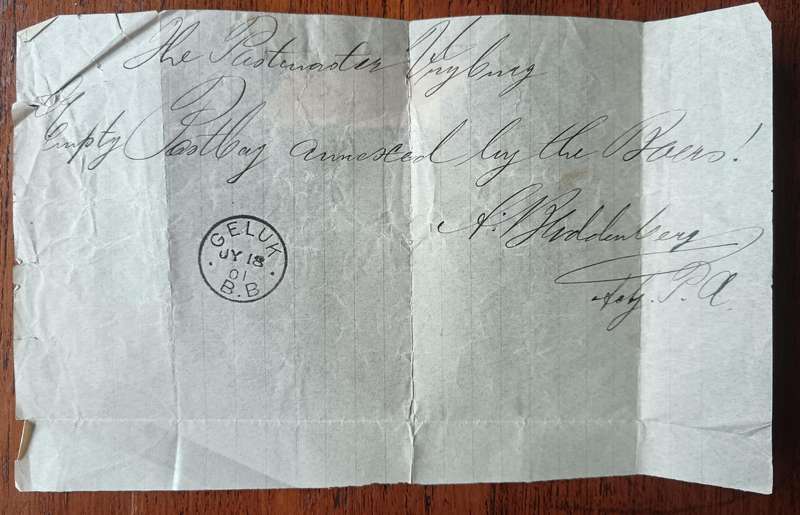 The Postmaster Vryburg
Empty Postbag annexed by the Boers!
A. Buddenberg
Actg. P. A.
GELUK
JY 18
01
B.B